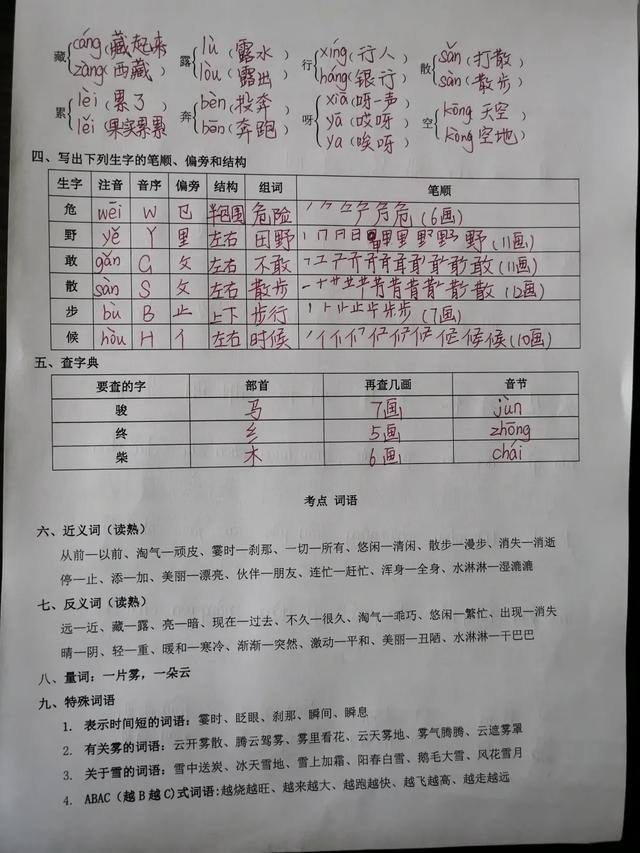 藏 cáng（藏起来） 露 lù（露水） 行 xíng（行人） 散 sǎn（打散）
zàng（西藏） lòu（露出） háng（银行） sàn（散步）
累 lèi（累了） 奔 bèn（投奔） 呀 xiā（呀一声） 空 kōng 天空
lěi（果实累累） bēn（奔跑） yā（哎呀） kòng 空地
ya（唉呀）
四、写出下列生字的笔顺、偏旁和结构
生字 注音 音序 偏旁 结构 组词 笔顺
危 wēi W 㔾 半包围 危险 （6画）
野 yě Y 里 左右 田野 野（11画）
敢 gǎn G 攵 左右 不敢 敢（11画）
散 sàn S 攵 左右 散步 散（12画）
步 bù B 止 上下 步行 步（7画）
候 hòu H 亻 左右 时候 候（10画）
五、查字典
要查的字 部首 再查几画 音节
骏 马 7画 jùn
终 纟 5画 zhōng
柴 木 6画 chái
考点 词语
六、近义词（读熟）
从前—以前、淘气—顽皮、霎时—刹那、一切—所有、悠闲—清闲、散步—漫步、消失—消逝
停—止、添—加、美丽—漂亮、伙伴—朋友、连忙—赶忙、浑身—全身、水淋淋—湿漉漉
七、反义词（读熟）
远—近、藏—露、亮—暗、现在—过去、不久—很久、淘气—乖巧、悠闲—繁忙、出现—消失
晴—阴、轻—重、暖和—寒冷、渐渐—突然、激动—平和、美丽—丑陋、水淋淋—干巴巴
八、量词：一片雾，一朵云
九、特殊词语
1. 表示时间短的词语：霎时、眨眼、刹那、瞬间、瞬息
2. 有关雾的词语：云开雾散、腾云驾雾、雾里看花、云天雾地、雾气腾腾、云遮雾罩
3. 关于雪的词语：雪中送炭、冰天雪地、雪上加霜、阳春白雪、鹅毛大雪、风花雪月
4. ABAC（越B越C)式词语:越烧越旺、越来越大、越跑越快、越飞越高、越走越远